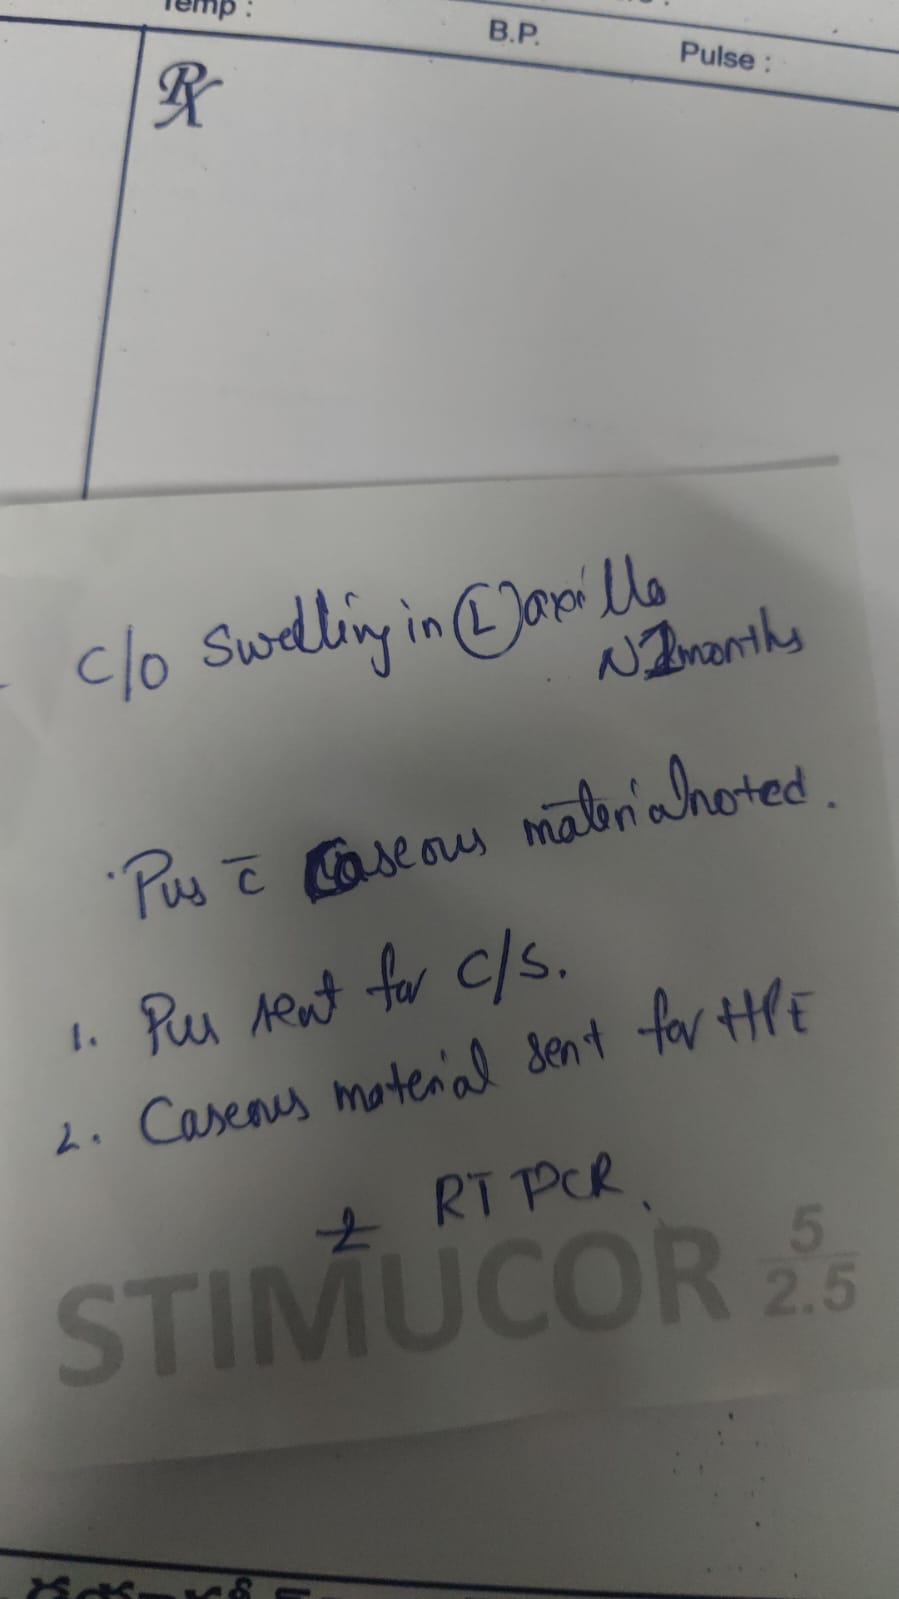 Temp :
B.P.
Pulse :
Rx
C/o Swelling in (L) axilla
months
Pus c̄ Caseous material noted.
1. Pus sent for C/S.
2. Caseous material sent for HPE
RT PCR.
STIMUCOR 5/2.5